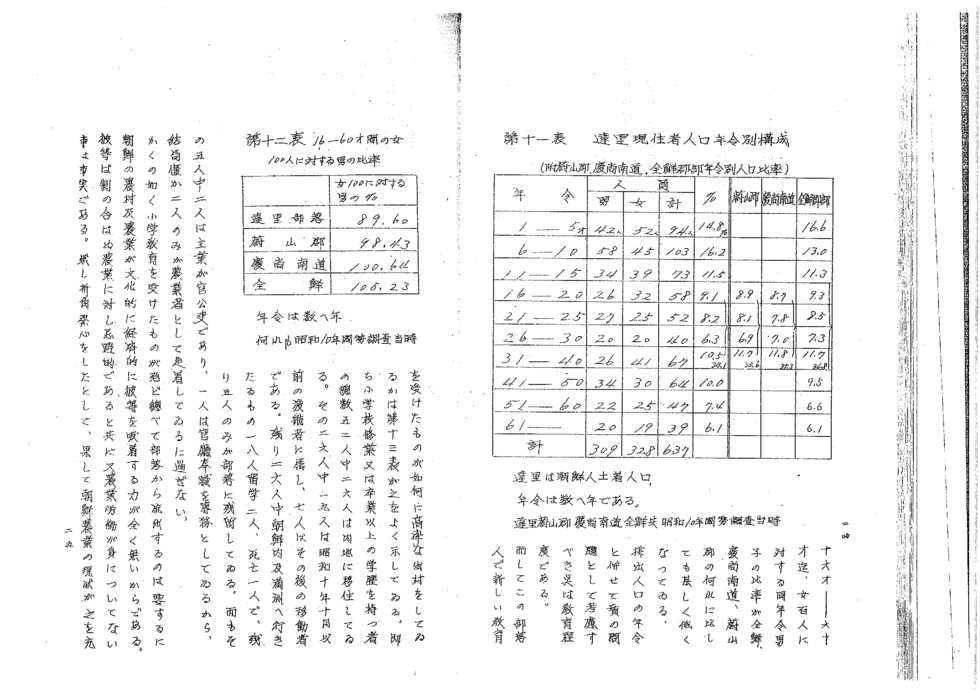 第十一表　達里現住者人口年令別構成
(附蔚山郡,慶尚南道,全鮮郡部年令別人口比率)
年令 人員 男 女 計 % 蔚山郡 慶尚南道 全鮮郡部
1—5才 42人 52人 94人 14.8% 16.6
6—10 58 45 103 16.2 13.0
11—15 34 39 73 11.5 11.3
16—20 26 32 58 9.1 8.9 8.7 9.3
21—25 27 25 52 8.2 8.1 7.8 8.5
26—30 20 20 40 6.3 6.9 7.0 7.3
31—40 26 41 67 10.5 11.7 11.8 11.7
41—50 34 30 64 10.0 9.5
51—60 22 25 47 7.4 6.6
61— 20 19 39 6.1 6.1
計 309 328 637
達里は朝鮮人土着人口,
年令は数へ年である。
達里蔚山郡慶尚南道全鮮共昭和10年國勢調査当時
十六才——六十
才迄、女百人に
対する同年令男
子の比率が全鮮、
慶尚南道、蔚山
郡の何れに比し
ても甚しく低く
なってゐる、
排出人口の年令
と併せて質の問
題として考慮す
べき点は教育程
度である。
而してこの部落
人で新しい教育
一四
第十二表 16—60才間の女
100人に対する男の比率
女100に対する男の%
達里部落 89.60
蔚山郡 98.43
慶尚南道 100.64
全鮮 105.23
年令は数へ年
何れも昭和10年國勢調査当時
を受けたものが如何に高率な出村をしてゐ
るかは第十三表が之をよく示してゐる。即
ち小学校修業又は卒業以上の学歴を持つ者
の總数五二人中二六人は内地に移住してゐ
る。その二六人中一九人は昭和十年十月以
前の渡航者に属し、七人はその後の移動者
である。残り二六人中朝鮮内及満洲へ行き
たるもの一八人留学二人、死亡一人で、残
り五人のみが部落に残留してゐる。而もそ
の五人中二人は主業が官公吏であり、一人は官廳奉職を専務としてゐるから、
結局僅か二人のみが農業者として定着してゐるに過ぎない。
かくの如く小学教育を受けたものが殆ど總べて部落から流出するのは要するに
朝鮮の農村及農業が文化的に経済的に彼等を吸着する力が全く無いからである。
彼等は割の合はぬ農業に対し忌避的であると共に又農業労働が身についてない
事も事実である。然し折角帰心をしたとして、果して朝鮮農業の現状が之を充
二五